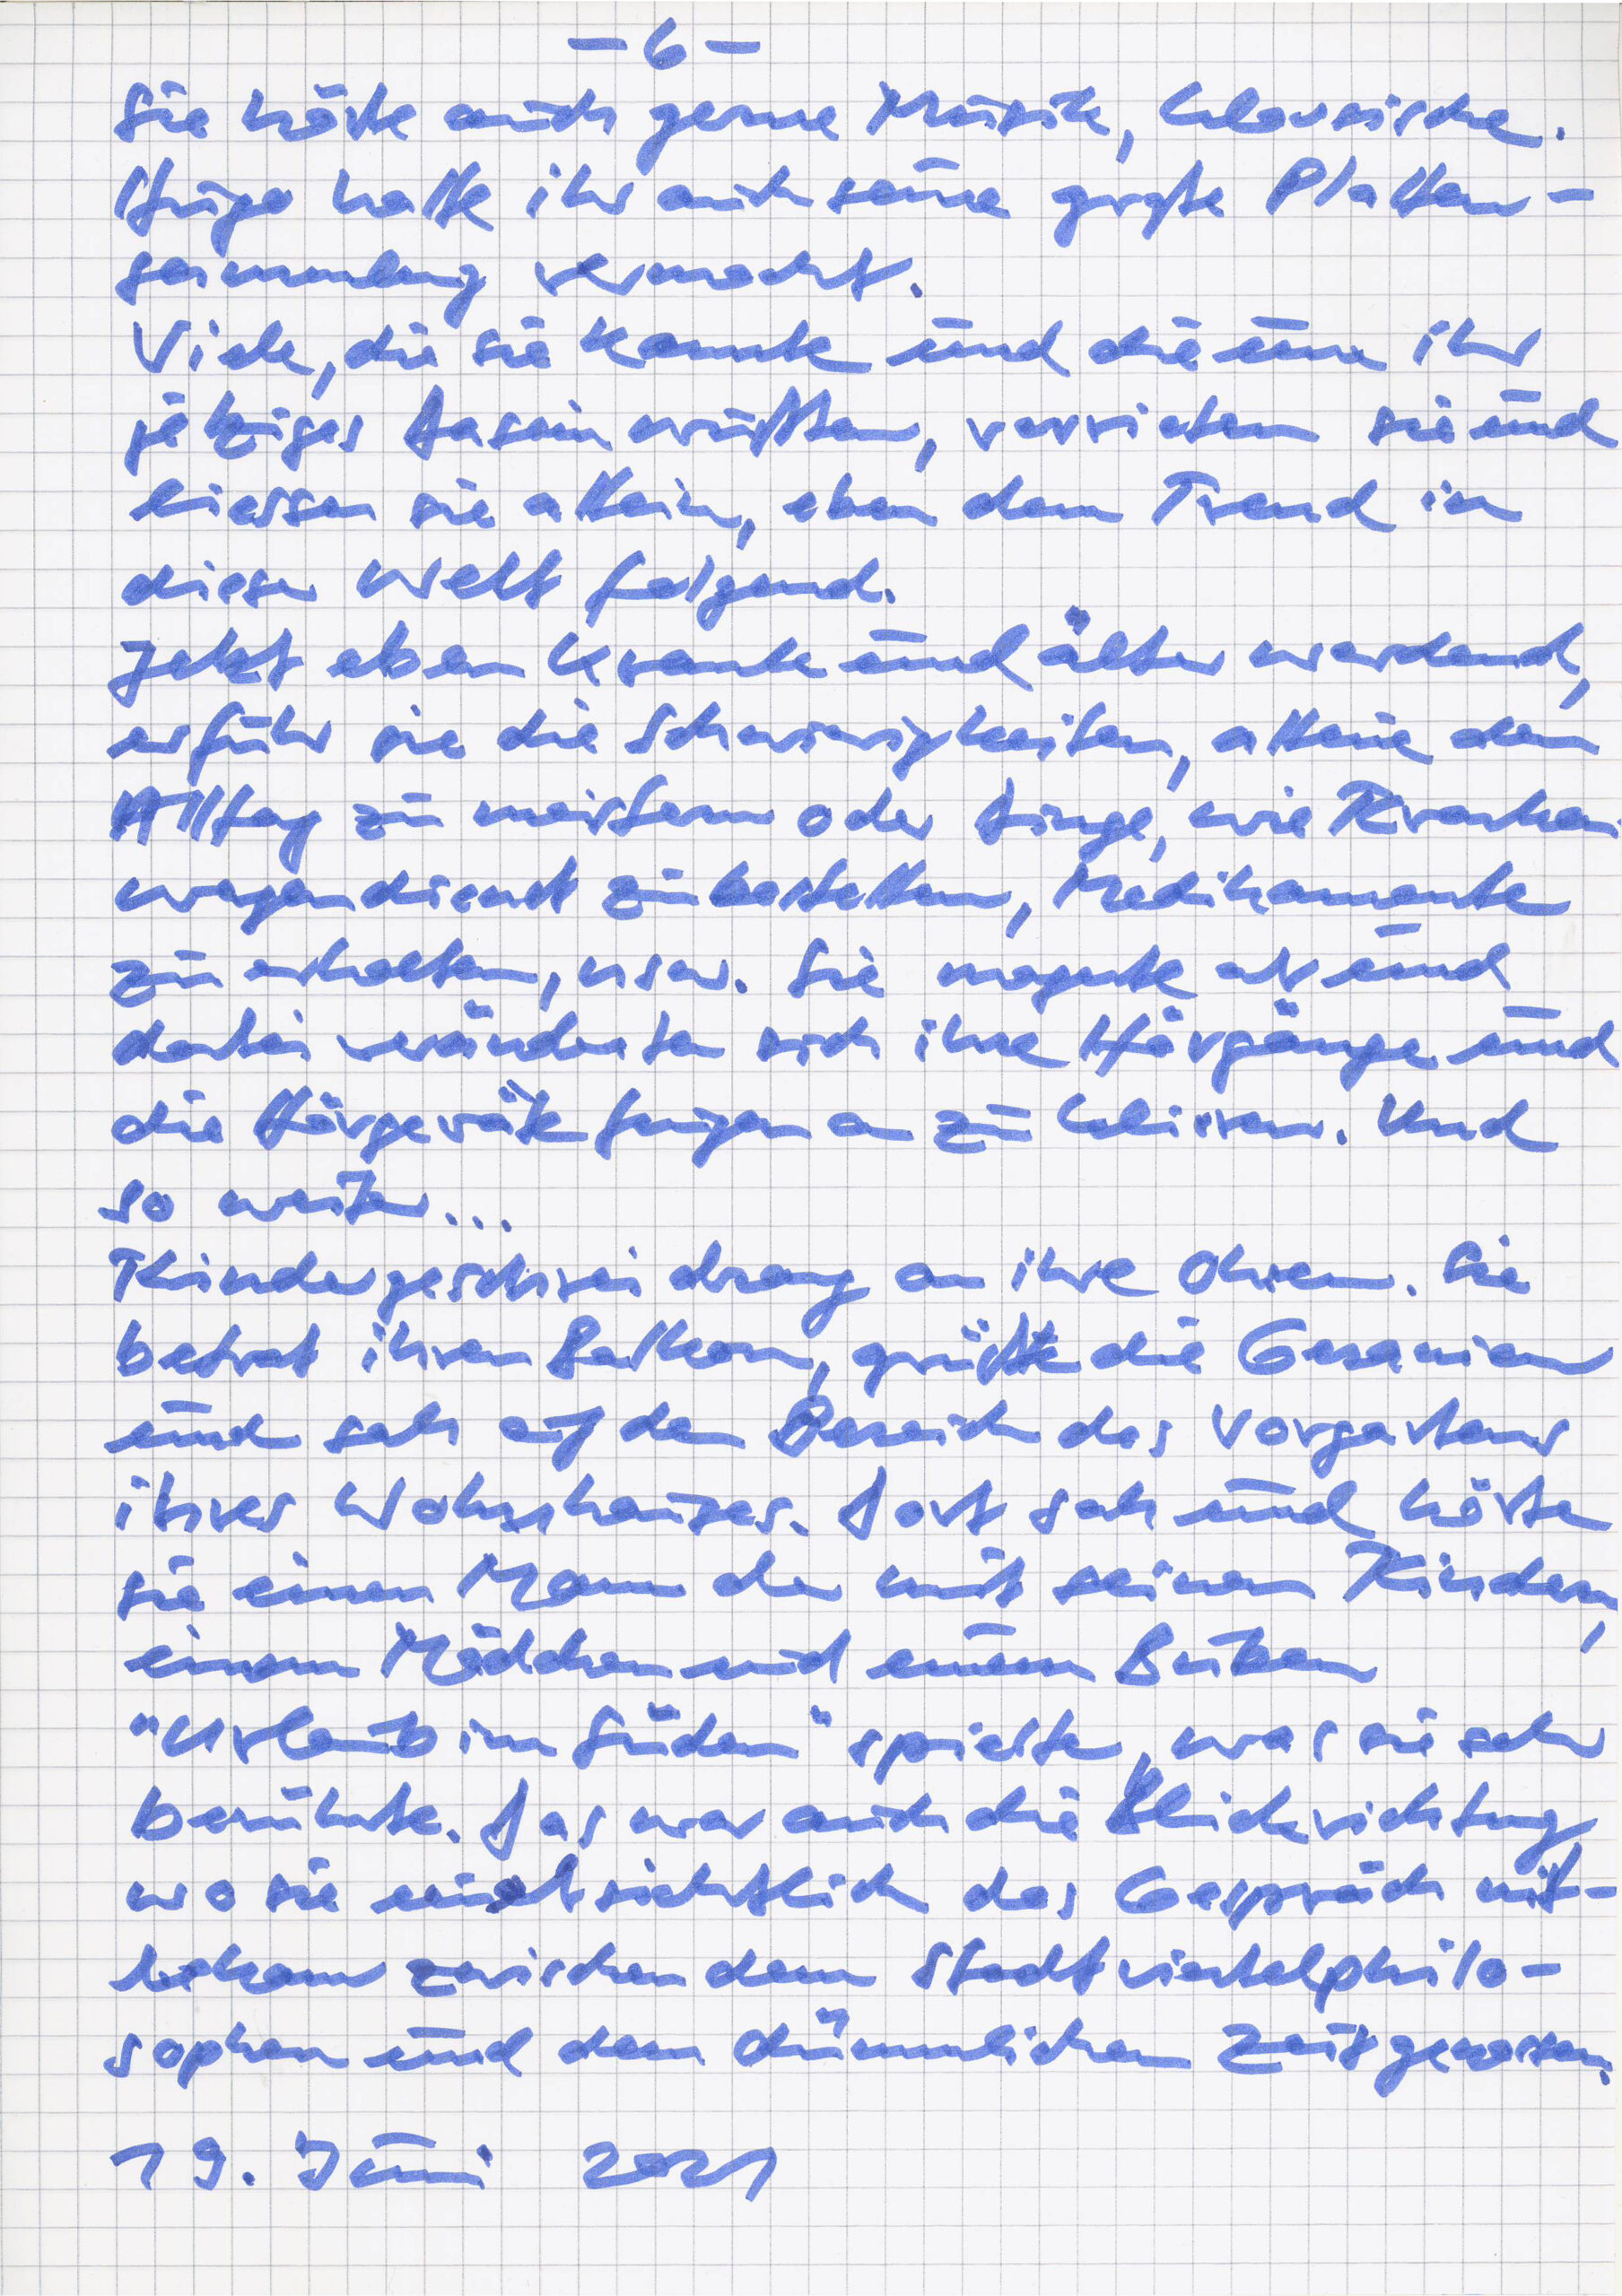 - 6 -
Sie hörte auch gerne Musik, klassische.
Hugo hatte ihr auch seine große Platten-
sammlung vermacht.
Viele, die sie kannte und die um ihr
jetziges Dasein wußten, verrieten sie und
liessen sie allein, eben dem Trend in
dieser Welt folgend.
Jetzt eben krank und älter werdend,
erfuhr sie die Schwierigkeiten, alleine den
Alltag zu meistern oder Dinge, wie Kranken
wagendienst zu bestellen, Medikamente
zu erhalten, usw. Sie magerte ab und
dabei veränderten sich ihre Hörgänge und
die Hörgeräte fingen an zu klirren. Und
so weiter...
Kindergeschrei drang an ihre Ohren. Sie
betrat ihren Balkon, grüßte die Geranien
und sah auf den Bereich des Vorgartens
ihres Wohnhauses. Dort sah und hörte
sie einen Mann der mit seinen Kindern,
einem Mädchen und einem Buben
"Urlaub im Süden" spielte, was sie sehr
berührte. Das war auch die Blickrichtung
wo sie das Gespräch mit-
bekam zwischen dem Stadtviertelphilo-
sophen und dem dümmlichen Zeitgenossen.
19. Juni 2021